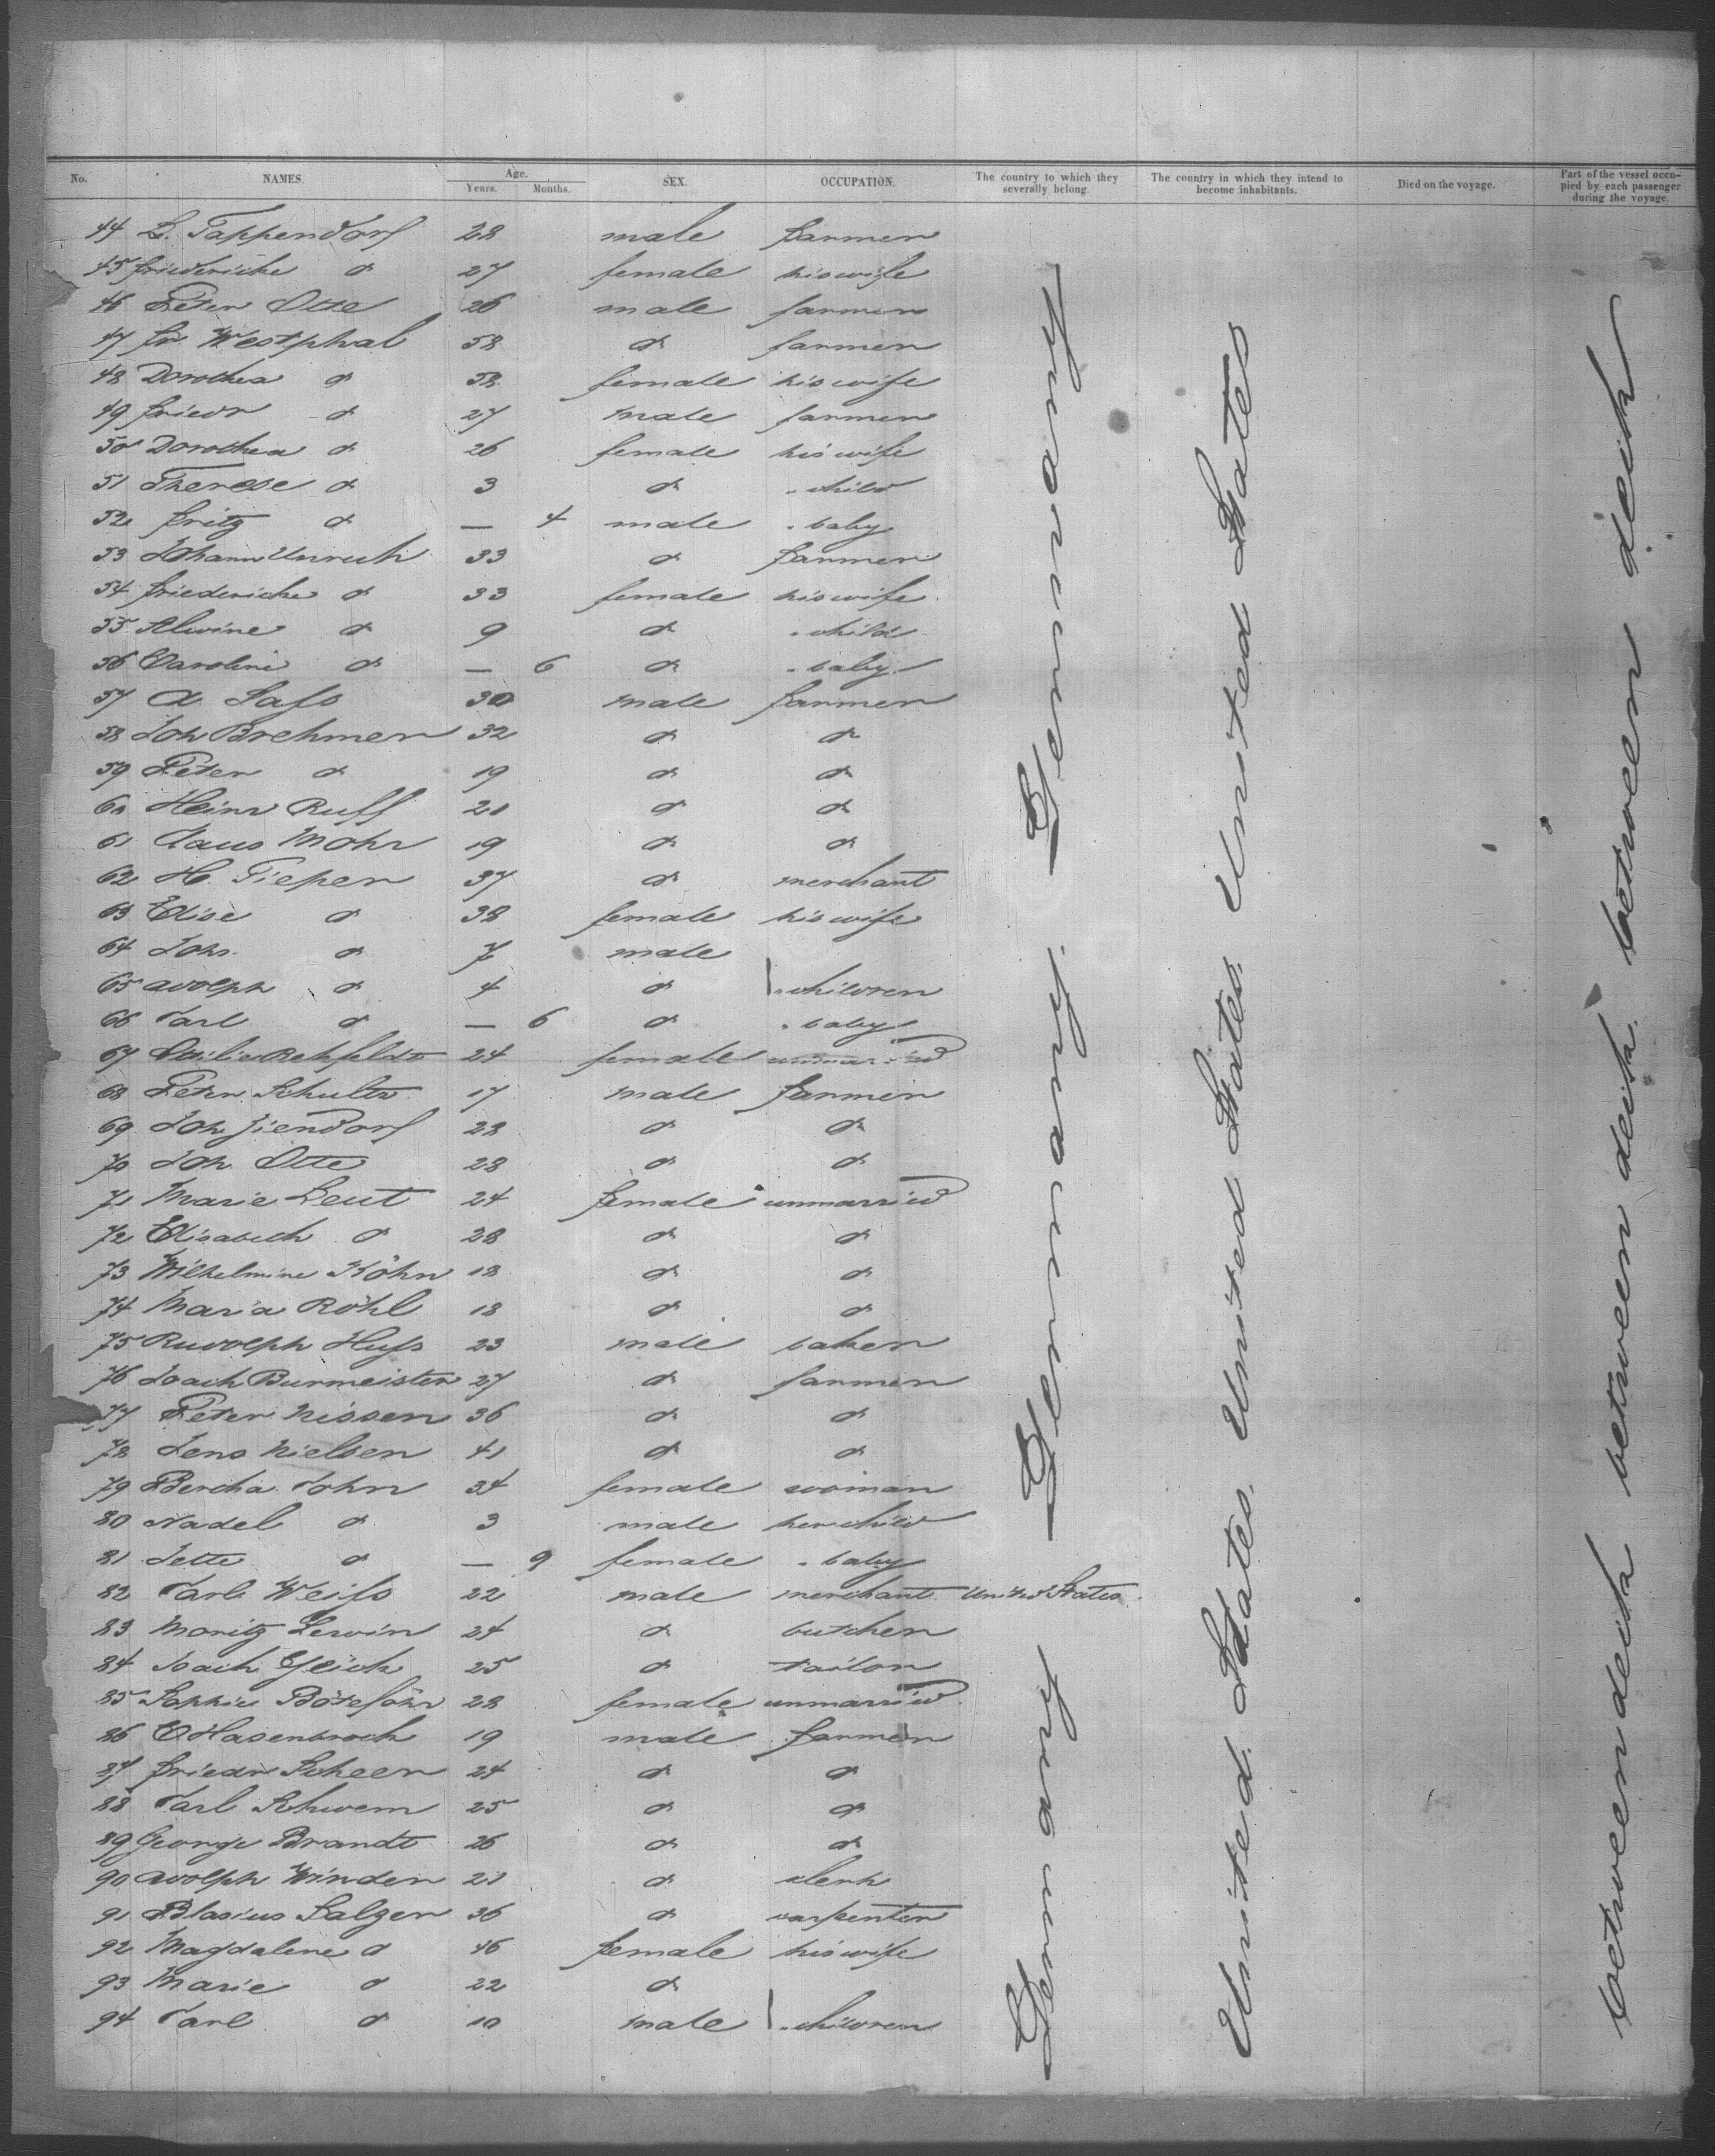 No. NAMES. Age. Years. Months. SEX. OCCUPATION. The country to which they severally belong. The country in which they intend to become inhabitants. Died on the voyage. Part of the vessel occupied by each passenger during the voyage.
44 L. Tappendorf 28 male farmer
45 Friederiche d 27 female his wife
46 Peter Otte 26 male farmer
47 Fr. Westphal 58 d farmer
48 Dorothea d 58 female his wife
49 Friedr d 27 male farmer
50 Dorothea d 26 female his wife
51 Therese d 3 d " child
52 Fritz d — 4 male " baby
53 Johann Unruh 33 d farmer
54 Friederiche d 33 female his wife
55 Alwine d 9 d " child
56 Caroline d — 6 d " baby
57 A. Saſs 30 male farmer
58 Joh Brehmer 32 d d
59 Peter d 19 d d
60 Heinr Ruff 20 d d
61 Claus Mohr 19 d d
62 H. Pieper 37 d merchant
63 Elise d 38 female his wife
64 Johs. d 7 male
65 Adolph d 4 d " children
66 Carl d — 6 d " baby
67 Rehfeldt 24 female unmarried
68 Peter Schultz 17 male farmer
69 Joh 28 d d
70 Joh. Otte 28 d d
71 Marie Leut 24 female unmarried
72 Elisabeth d 28 d d
73 Wilhelmine Köhn 18 d d
74 Maria Röhl 18 d d
75 Rudolph Huſs 23 male baker
76 Joach Burmeister 27 d farmer
77 Peter Nissen 36 d d
78 Jens Nielsen 41 d d
79 Bertha Cohn 34 female woman
80 Nadel d 3 male her child
81 Jette d — 9 female " baby
82 Carl Weiſs 22 male merchant United States.
83 Moritz Lewin 24 d butcher
84 Joach 25 d tailor
85 Sophie 28 female unmarried
86 Hasenbroek 19 male farmer
87 Friedr Scheer 24 d d
88 Carl Schwem 25 d d
89 George Brandt 26 d d
90 Adolph Winder 21 d clerk
91 Blasius Salzer 36 d carpenter
92 Magdalene d 46 female his wife
93 Marie d 22 d
94 Carl d 10 male " children
Germany Germany. Germany
United States. United States. United States. United States
between deck between deck. between deck